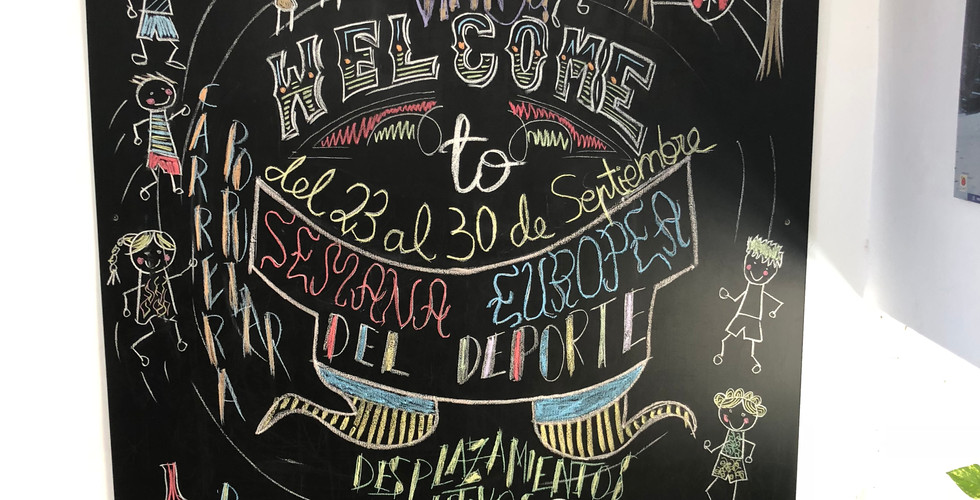 WELCOME
to
del 23 al 30 de Septiembre
SEMANA EUROPEA
DEL DEPORTE
CARRERA
DESPLAZAMIENTOS